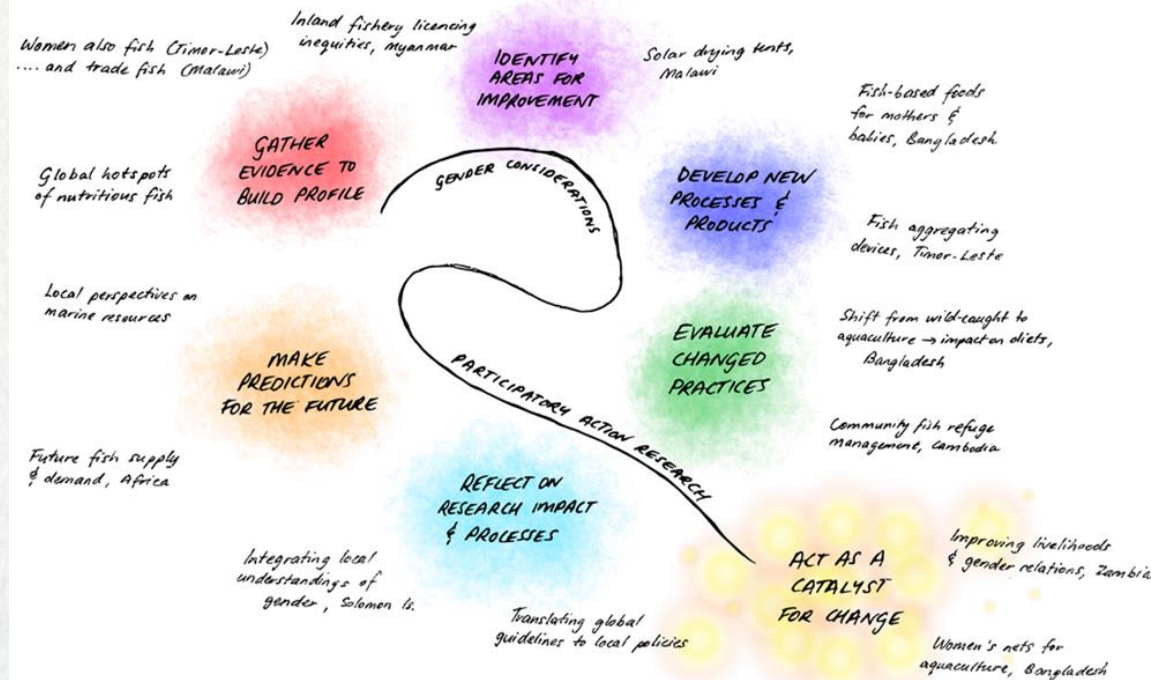 Women also fish (Timor-Leste)
.... and trade fish (Malawi)
Inland fishery licencing
inequities, Myanmar
IDENTIFY
AREAS FOR
IMPROVEMENT
Solar drying tents,
Malawi
GATHER
EVIDENCE TO
BUILD PROFILE
Global hotspots
of nutritious fish
GENDER CONSIDERATIONS
DEVELOP NEW
PROCESSES &
PRODUCTS
Fish-based foods
for mothers &
babies, Bangladesh
Fish aggregating
devices, Timor-Leste
Local perspectives on
marine resources
MAKE
PREDICTIONS
FOR THE FUTURE
Future fish supply
& demand, Africa
EVALUATE
CHANGED
PRACTICES
Shift from wild-caught to
aquaculture → impact on diets,
Bangladesh
Community fish refuge
management, Cambodia
PARTICIPATORY ACTION RESEARCH
REFLECT ON
RESEARCH IMPACT
& PROCESSES
Integrating local
understandings of
gender, Solomon Is.
Translating global
guidelines to local policies
ACT AS A
CATALYST
FOR CHANGE
Improving livelihoods
& gender relations, Zambia
Women's nets for
aquaculture, Bangladesh